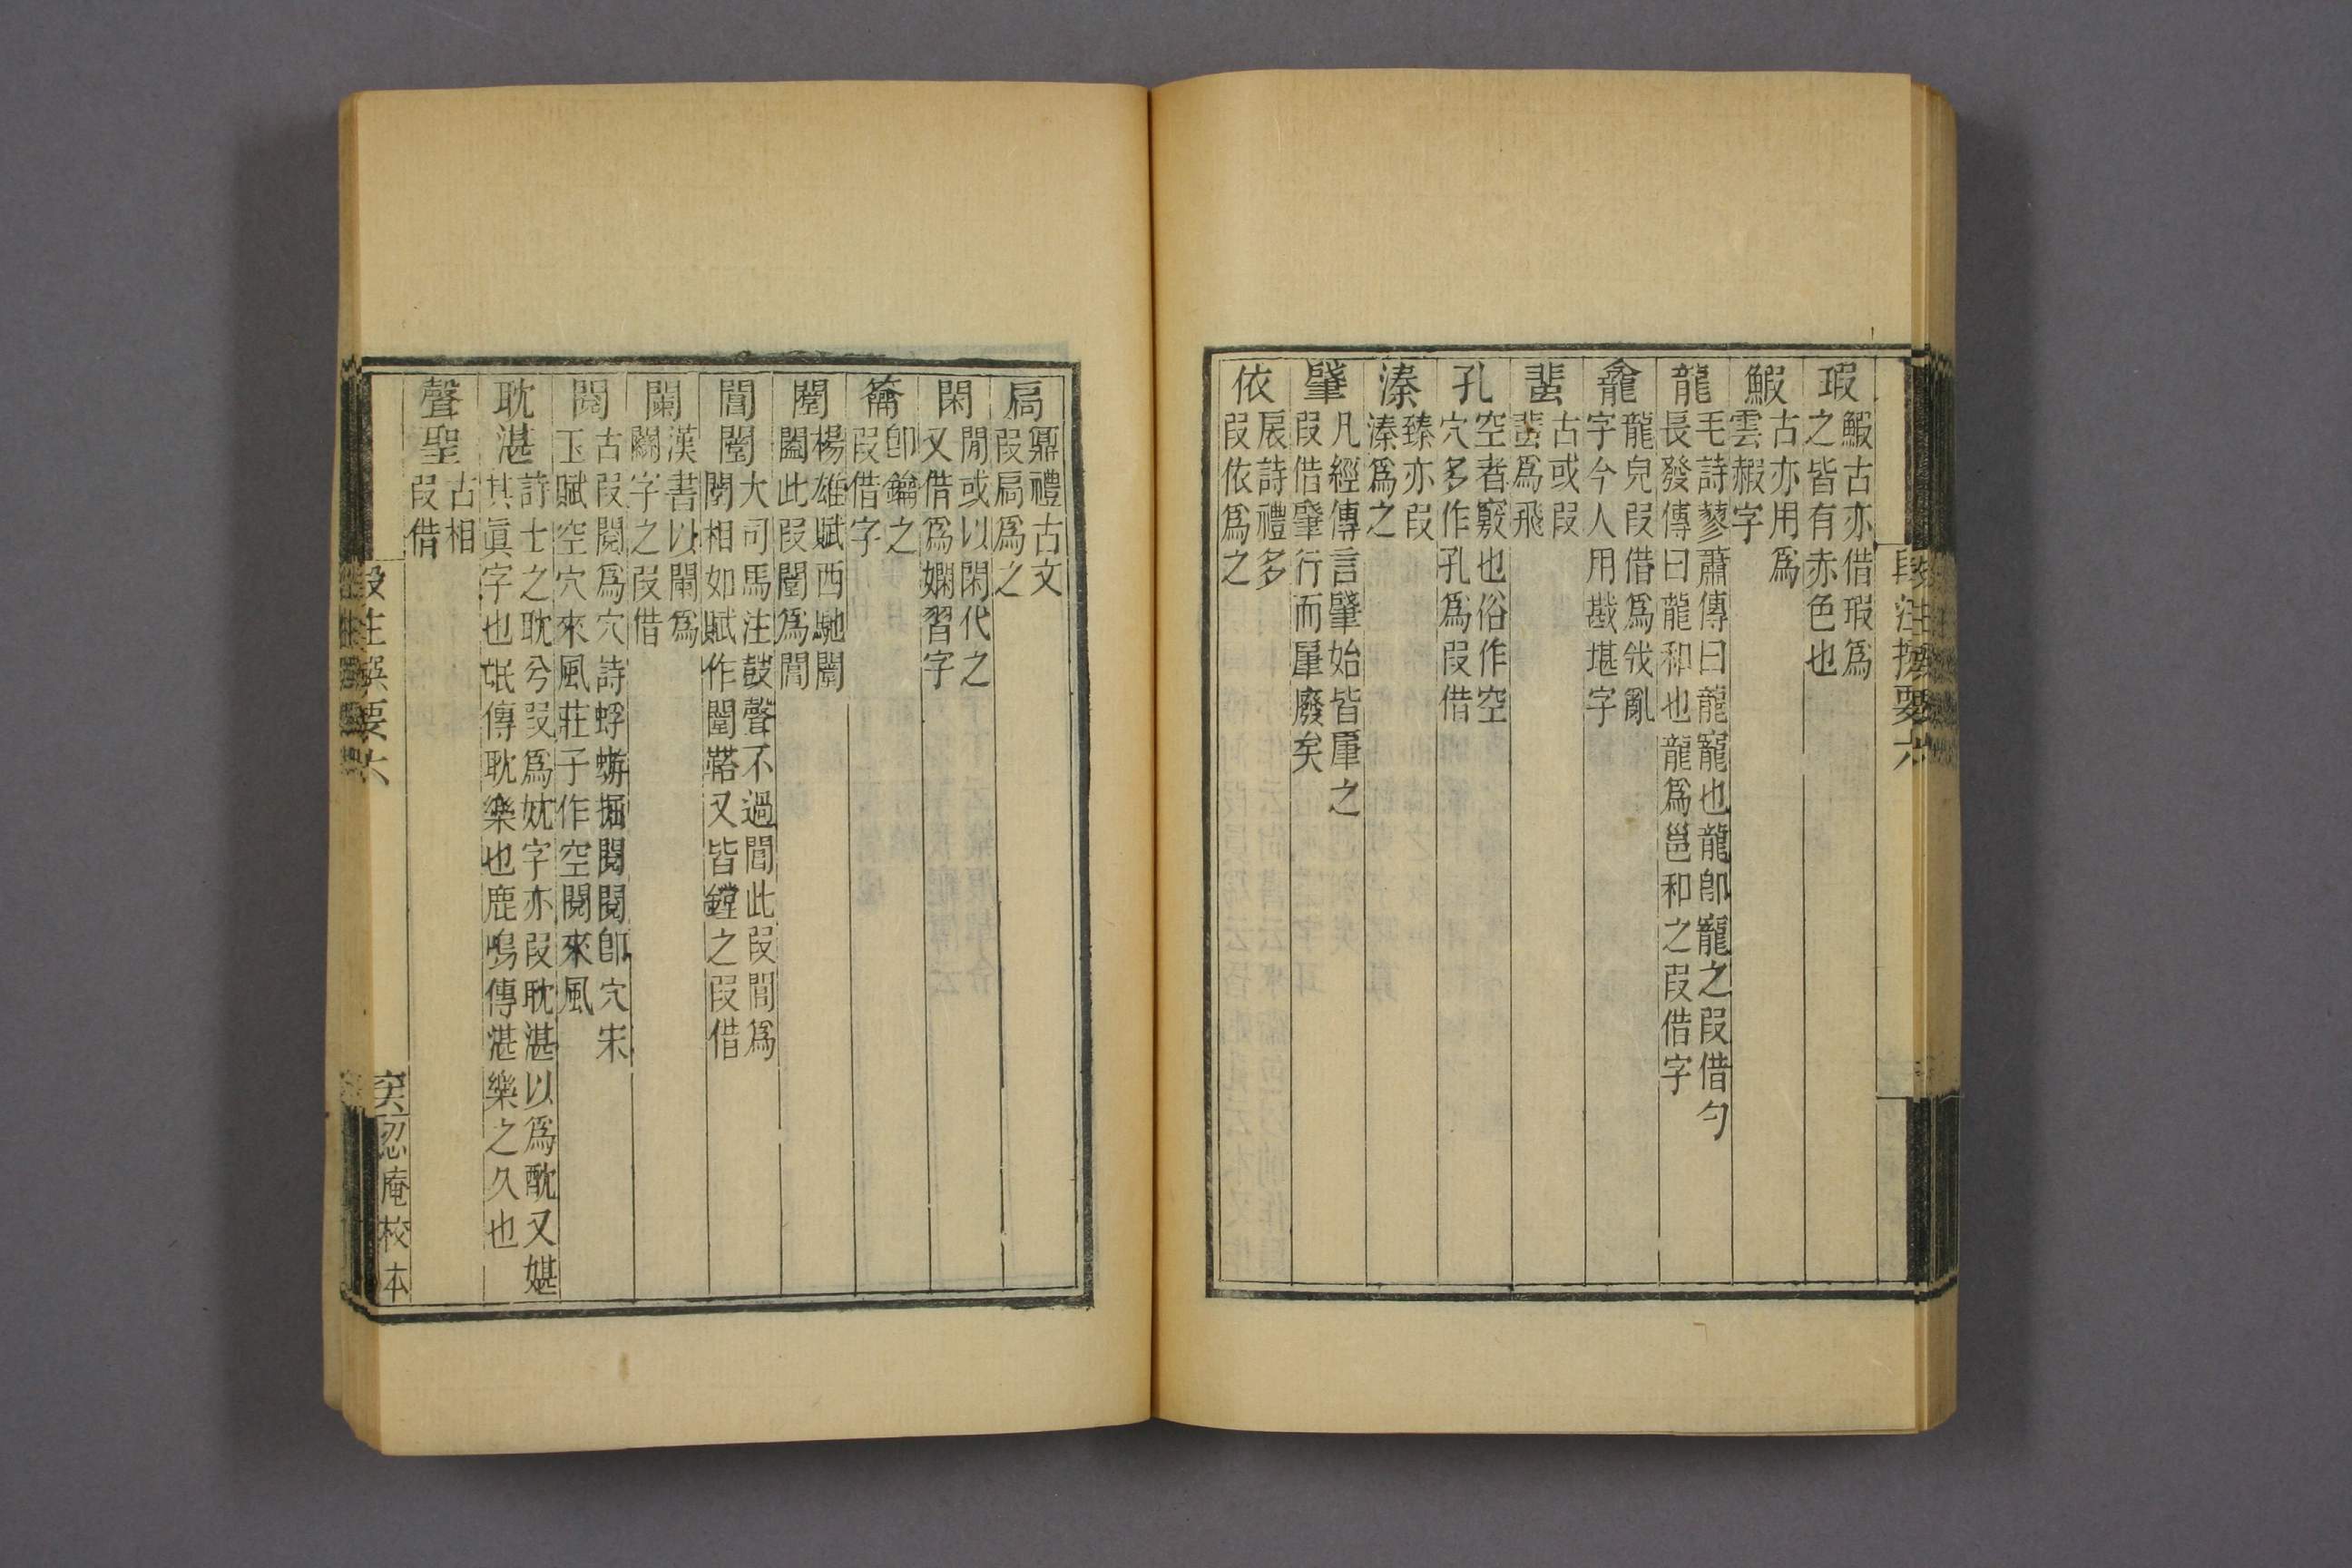 瑕 鰕古亦借瑕爲
之皆有赤色也
鰕 古亦用爲
雲赮字
龍 毛詩蓼蕭傳曰龍寵也龍卽寵之叚借勺
長發傳曰龍和也龍爲邕和之叚借字
龕 龍皃叚借爲㦰亂
字今人用戡堪字
蜚 古或叚
蜚爲飛
孔 空者竅也俗作空
穴多作孔爲叚借
溱 臻亦叚
溱爲之
肇 凡經傳言肇始皆肁之
叚借肇行而肁廢矣
依 扆詩禮多
叚依爲之
扃 鼏禮古文
叚扃爲之
閑 閒或以閑代之
又借爲嫻習字
籥 卽鑰之
叚借字
闛 楊雄賦西馳闛
闔此叚闛爲閶
閶闛 大司馬注鼓聲不過閶此叚閶爲
闛相如賦作闛鞈又皆鏜之叚借
闌 漢書以闌爲
闌字之叚借
閱 古叚閱爲穴詩蜉蝣掘閱閱卽穴宋
玉賦空穴來風莊子作空閱來風
耽湛 詩士之耽兮叚爲妉字亦叚耽湛以爲酖又媅
其眞字也氓傳耽樂也鹿鳴傳湛樂之久也
聲聖 古相
叚借
段注撰要六
忍庵校本